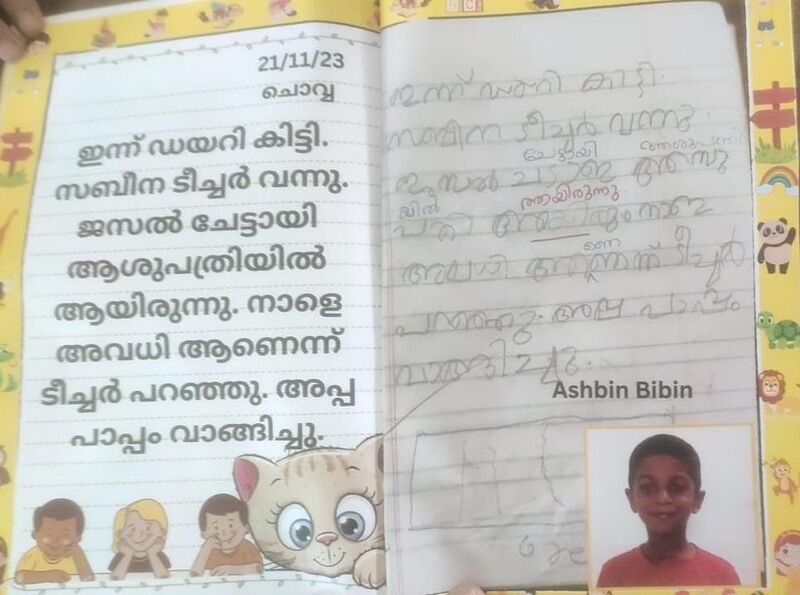 21/11/23
ചൊവ്വ
ഇന്ന് ഡയറി കിട്ടി.
സബീന ടീച്ചർ വന്നു.
ജസൽ ചേട്ടായി
ആശുപത്രിയിൽ
ആയിരുന്നു. നാളെ
അവധി ആണെന്ന്
ടീച്ചർ പറഞ്ഞു. അപ്പ
പാപ്പം വാങ്ങിച്ചു.
ഇന്ന് ഡയറി കിട്ടി.
സബീന ടീച്ചർ വന്നു.
ചേട്ടായി ആശുപത്രി
ജസൽ
യിൽ ത്തായിരുന്നു
ണെ
അവധി ടീച്ചർ
അപ്പ പാപ്പം
വാങ്ങിച്ചു.
Ashbin Bibin